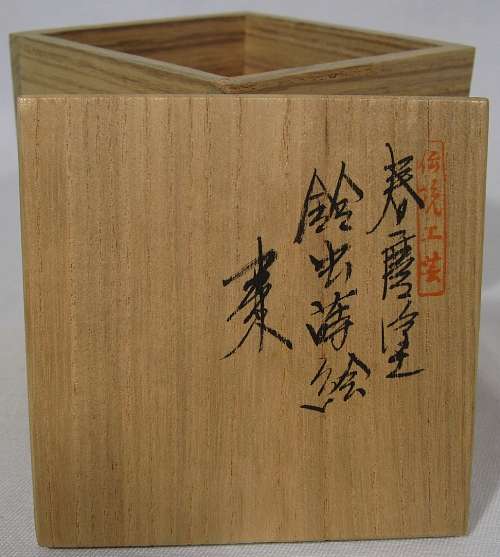 伝統工芸
春慶塗
鈴虫蒔絵
棗